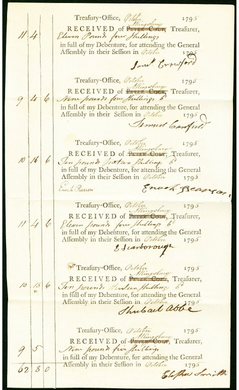 Treasury-Office, October 1795
Kingsbury
11 4 RECEIVED of Peter Colt, Treasurer,
Eleven Pounds four shillings
in full of my Debenture, for attending the General
Assembly in their Session in October 1795
Treasury-Office, October 1795
Kingsbury
RECEIVED of Peter Colt, Treasurer,
9 4 6 Nine pounds four shillings 6d
in full of my Debenture, for attending the General
Assembly in their Session in October 1795
Samuel Canfield
Treasury-Office, October 1795
Kingsbury
RECEIVED of Peter Colt, Treasurer,
10 16 6 Ten pounds sixteen shillings 6d
in full of my Debenture, for attending the General
Assembly in their Session in October 1795
Enoch Pearson
Treasury-Office, October 1795
Kingsbury
RECEIVED of Peter Colt, Treasurer,
11 4 6 Eleven pounds four shillings 6
in full of my Debenture, for attending the General
Assembly in their Session in October 1795
Scarborough
Treasury-Office, October 1795
Kingsbury
RECEIVED of Peter Colt, Treasurer,
10 6 Ten pounds shillings 6
in full of my Debenture, for attending the General
Assembly in their Session in October 1795
Shubael Abbe
Treasury-Office, October 1795
Kingsbury
RECEIVED of Peter Colt, Treasurer,
9 5 Nine pound five shillings
in full of my Debenture, for attending the General
62 5 0 Assembly in their Session in October 1795
Smith